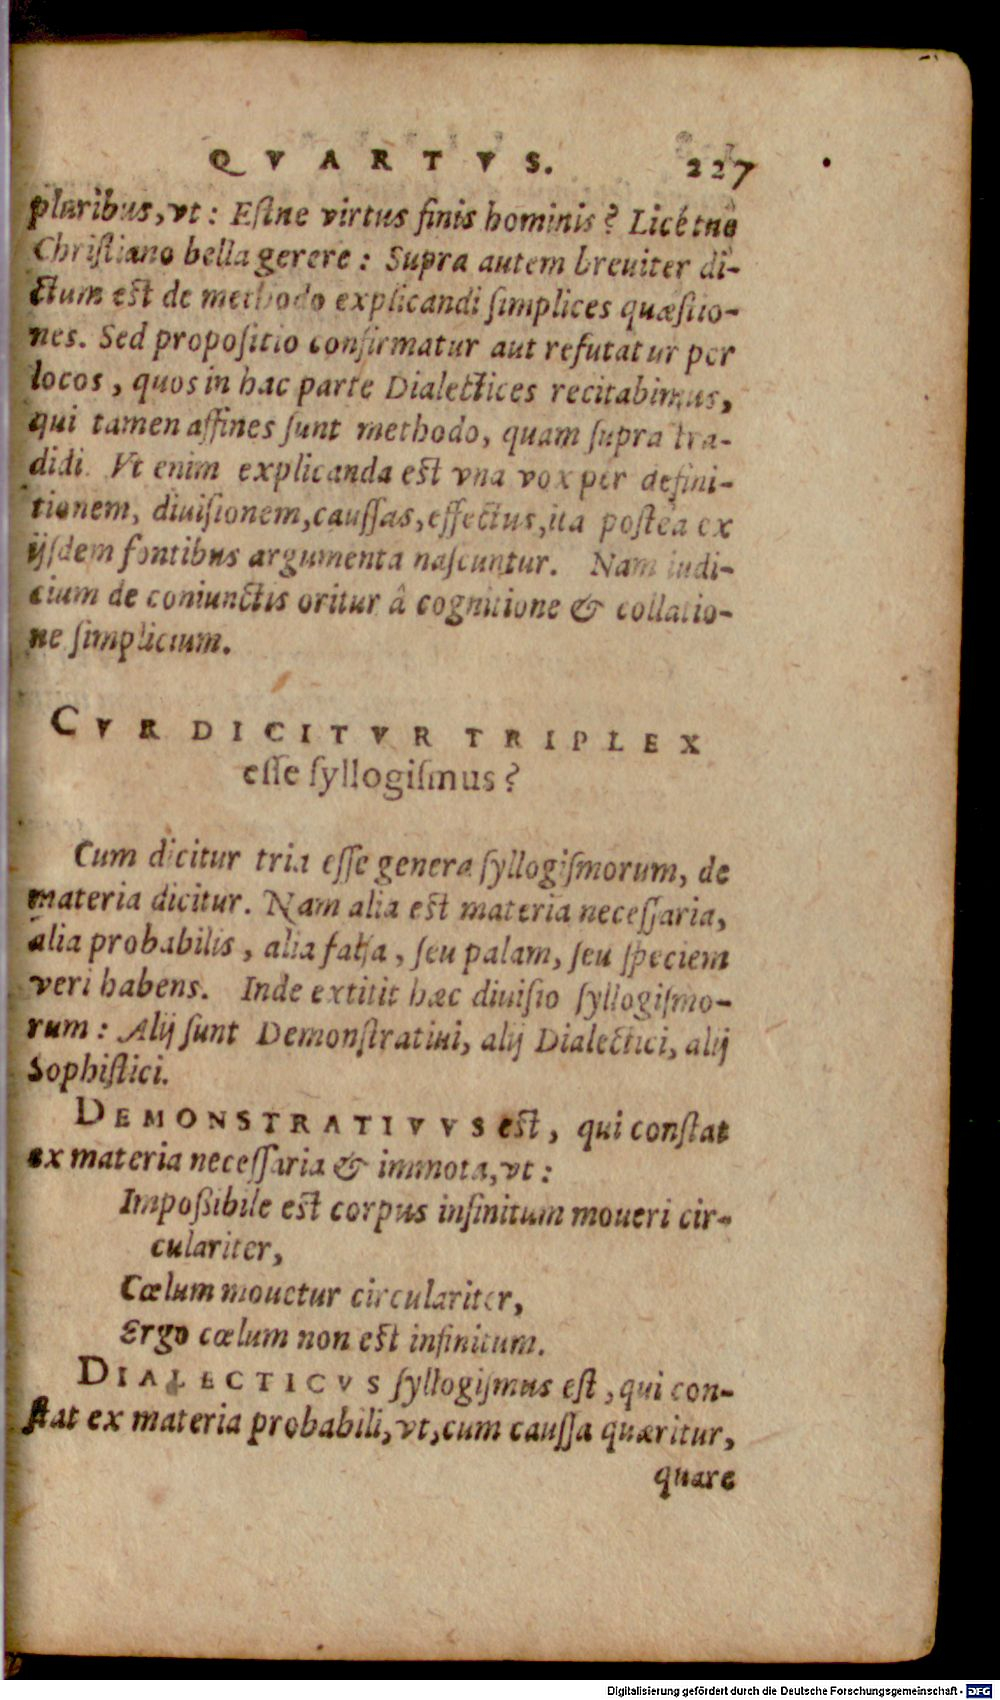 QVARTVS. 227
pluribus, vt: Estne virtus finis hominis? Licétne
Christiano bella gerere: Supra autem breuiter di-
ctum est de methodo explicandi simplices quæstio-
nes. Sed propositio confirmatur aut refutatur per
locos, quos in hac parte Dialectices recitabimus,
qui tamen affines sunt methodo, quam supra tra-
didi. Vt enim explicanda est vna vox per defini-
tionem, diuisionem, caussas, effectus, ita postea ex
ijsdem fontibus argumenta nascuntur. Nam iudi-
cium de coniunctis oritur â cognitione & collatio-
ne simplicium.
CVR DICITVR TRIPLEX
esse syllogismus?
Cum dicitur tria esse genera syllogismorum, de
materia dicitur. Nam alia est materia necessaria,
alia probabilis, alia falsa, seu palam, seu speciem
veri habens. Inde extitit hæc diuisio syllogismo-
rum: Alij sunt Demonstratiui, alij Dialectici, alij
Sophistici.
DEMONSTRATIVVS est, qui constat
ex materia necessaria & immota, vt:
Impoßibile est corpus infinitum moueri cir-
culariter,
Cælum mouetur circulariter,
Ergo cælum non est infinitum.
DIALECTICVS syllogismus est, qui con-
stat ex materia probabili, vt, cum caussa quæritur,
quare
Digitalisierung gefördert durch die Deutsche Forschungsgemeinschaft - DFG